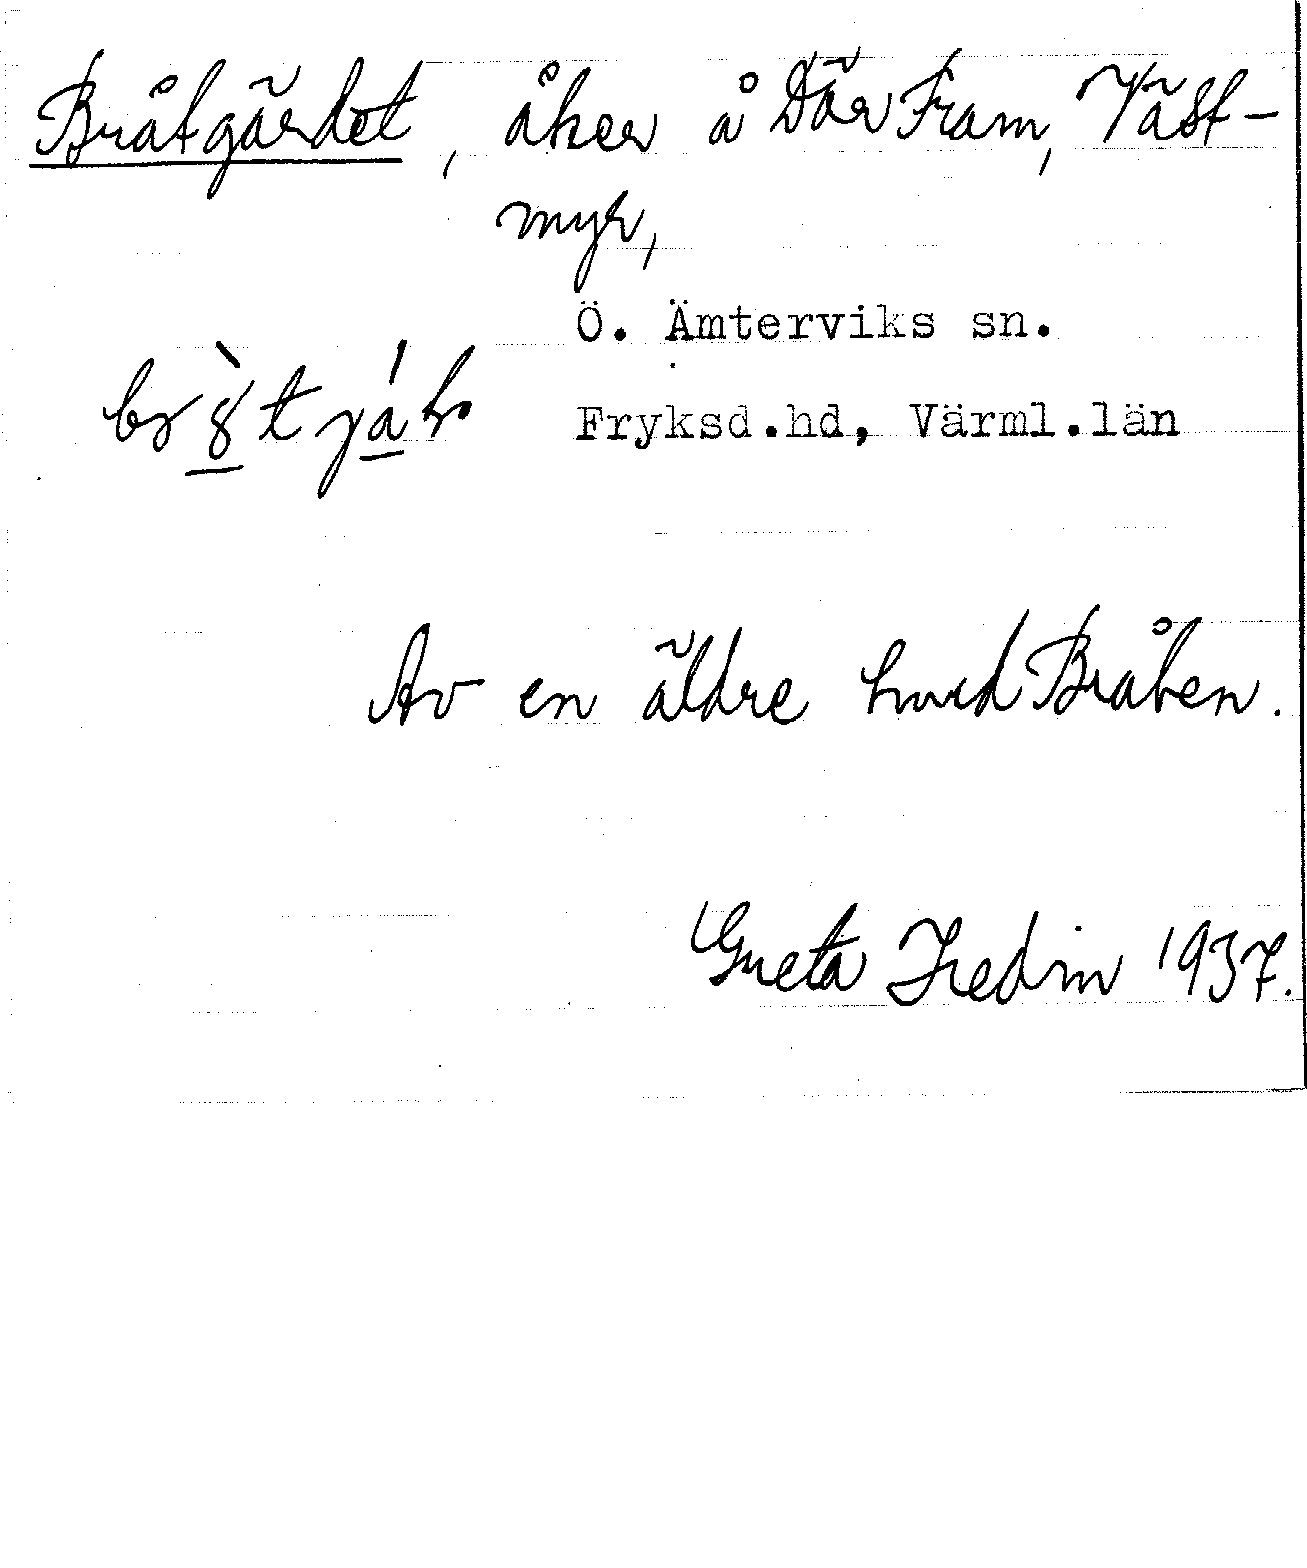 Bråtgärdet, åker å Där Fram, Väst-
myr,
Ö. Ämterviks sn.
Fryksd.hd, Värml.län
Av en äldre hmd Bråten.
Greta Hedin 1937.